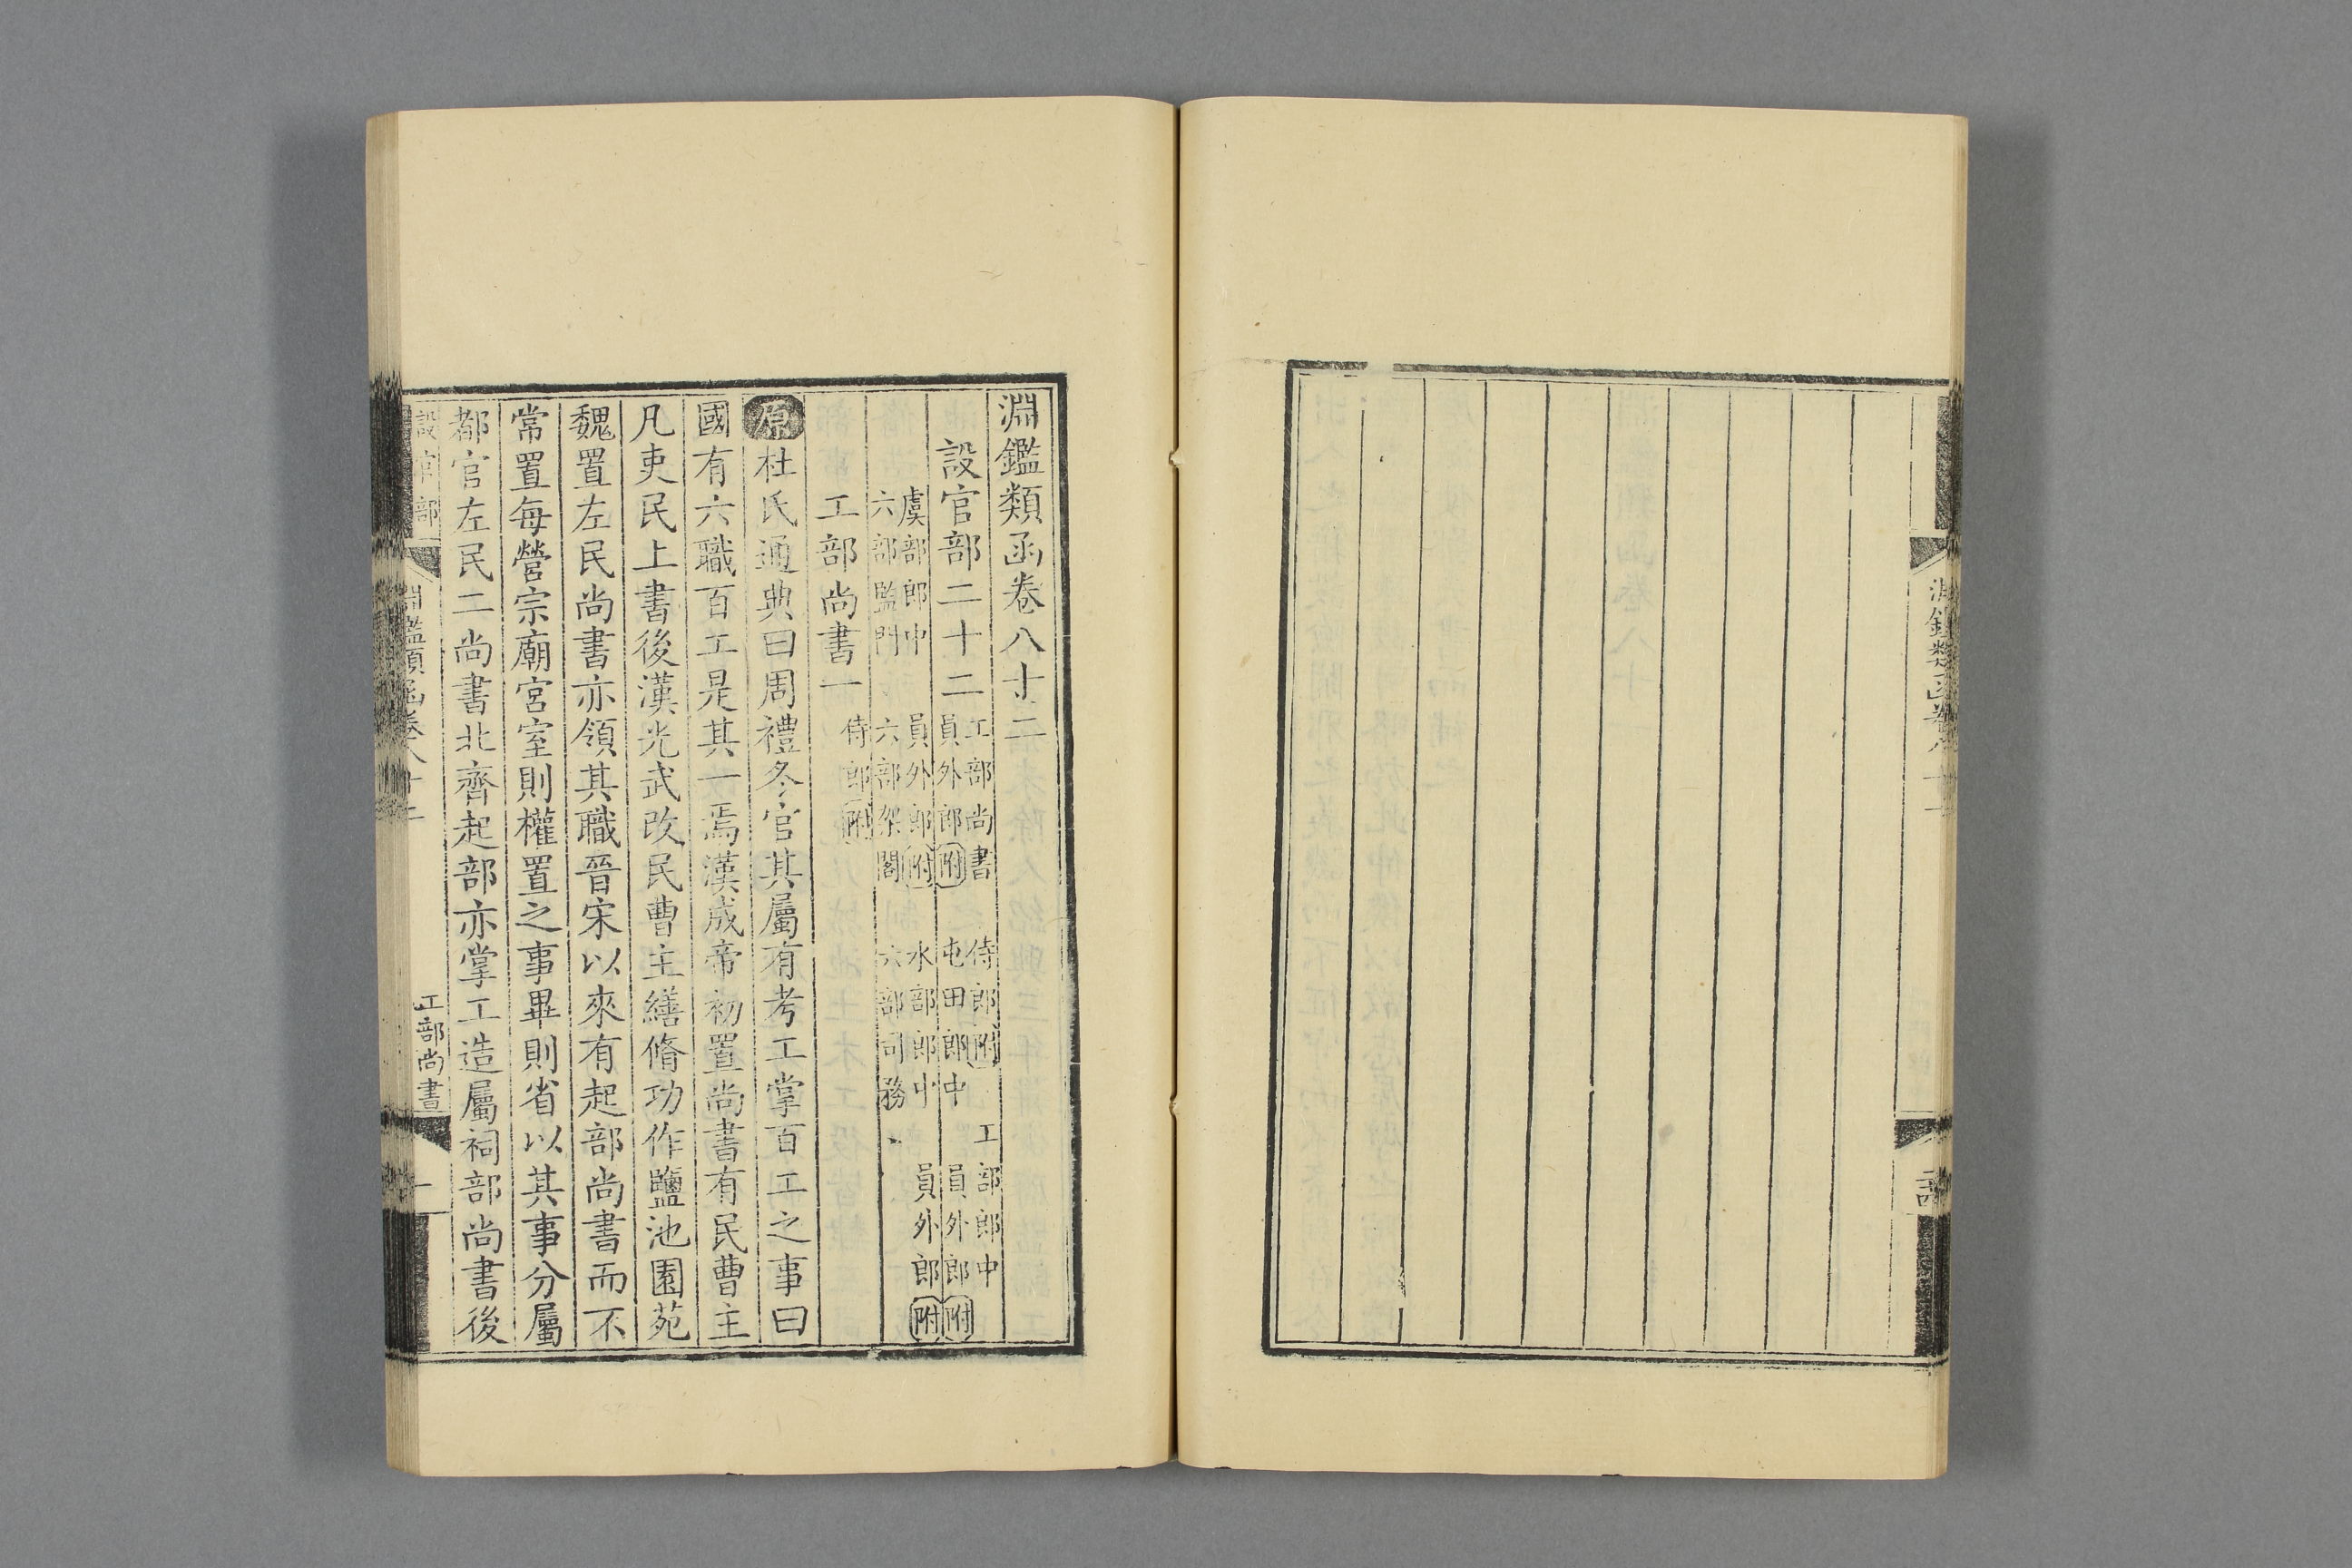 淵鑑類函卷八十二
設官部二十二
工部尚書 侍郎附 工部郎中
員外郎附 屯田郎中 員外郎附
虞部郎中 員外郎附 水部郎中 員外郎附
六部監門 六部架閣 六部司務
工部尚書一 侍郎附
原杜氏通典曰周禮冬官其屬有考工掌百工之事曰
國有六職百工是其一焉漢成帝初置尚書有民曹主
凡吏民上書後漢光武改民曹主繕脩功作鹽池園苑
魏置左民尚書亦領其職晉宋以來有起部尚書而不
常置每營宗廟宮室則權置之事畢則省以其事分屬
都官左民二尚書北齊起部亦掌工造屬祠部尚書後
設官部
淵鑑類函卷八十二
工部尚書
一